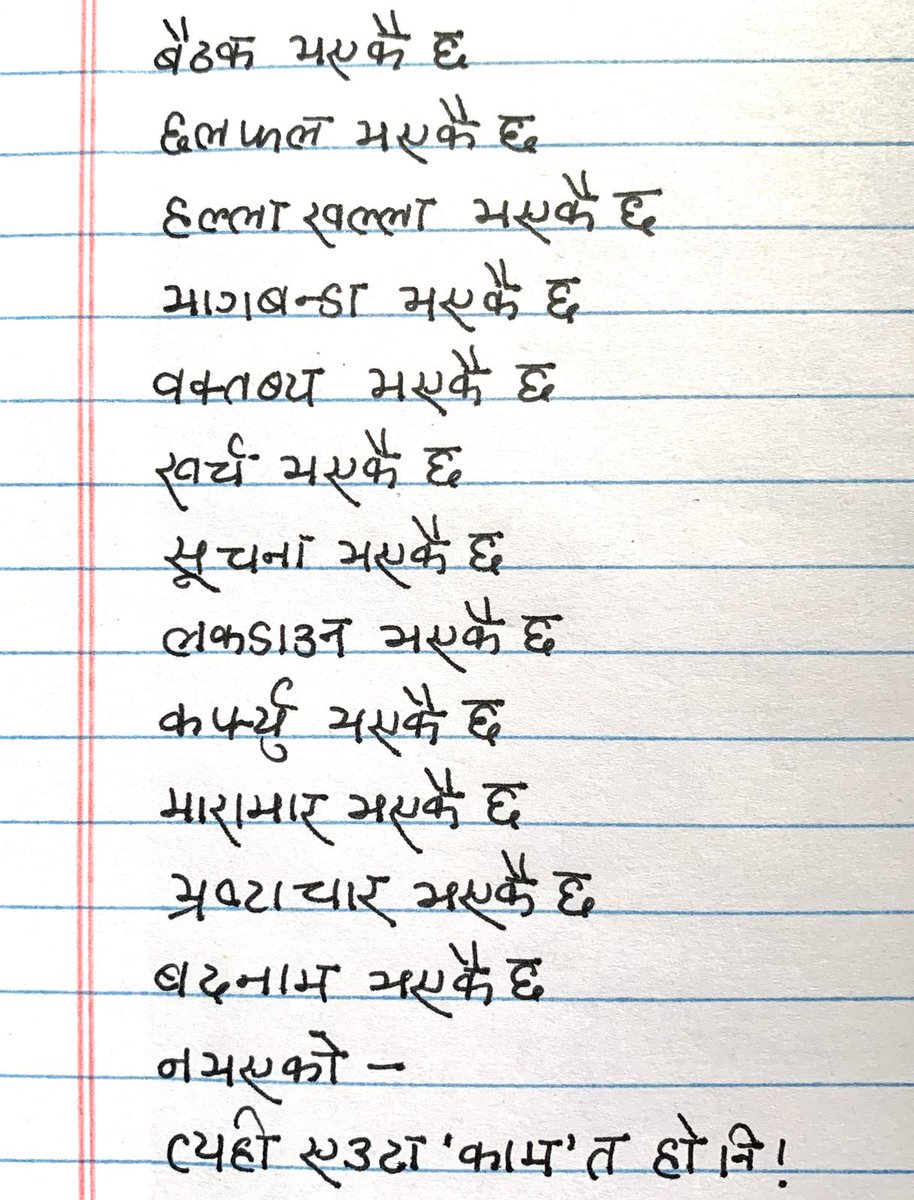 बैठक भएकै छ
छलफल भएकै छ
हल्लाखल्ला भएकै छ
भागबन्डा भएकै छ
वक्तब्य भएकै छ
खर्च भएकै छ
सूचना भएकै छ
लकडाउन भएकै छ
कर्फ्यु भएकै छ
मारामार भएकै छ
भ्रष्टाचार भएकै छ
बदनाम भएकै छ
नभएको –
त्यही एउटा 'काम' त हो नि!